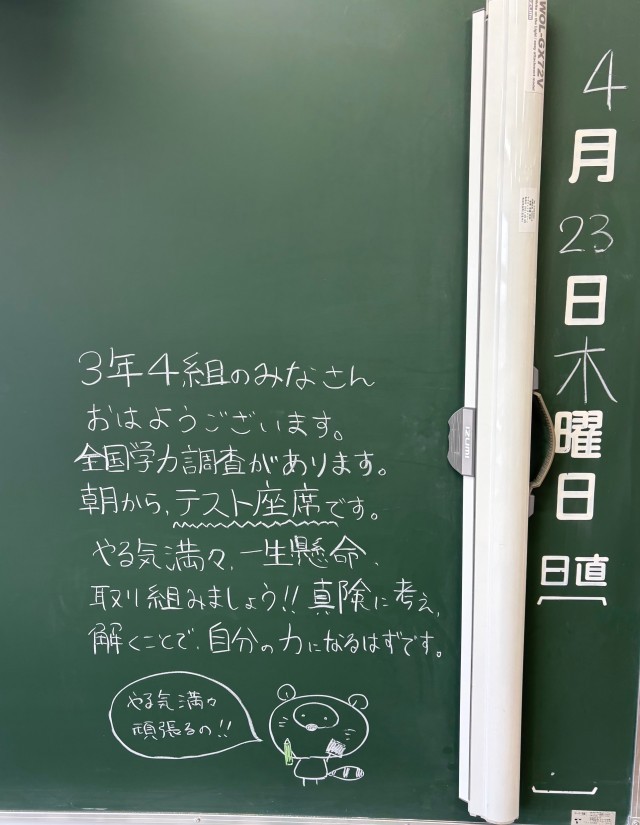 4月23日木曜日
日直
3年4組のみなさん
おはようございます。
全国学力調査があります。
朝から、テスト座席です。
やる気満々、一生懸命、
取り組みましょう!!真険に考え、
解くことで、自分の力になるはずです。
やる気満々
頑張るの!!
WOL-GX72V
IZUMI